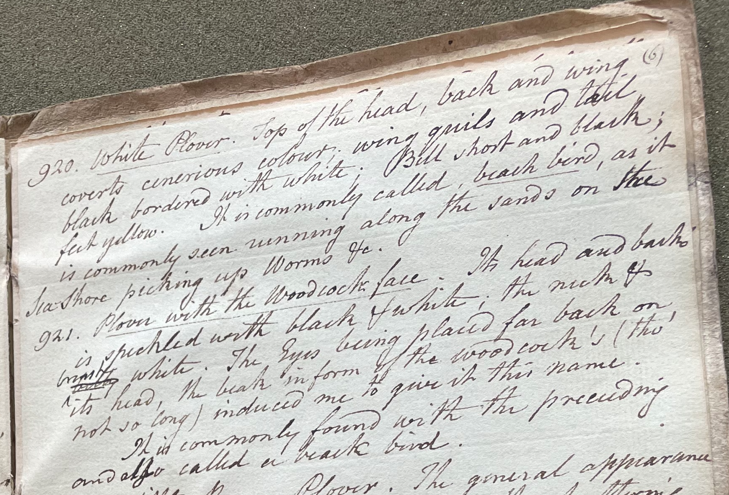 (6)
920. White Plover. Top of the head, back and wing
coverts cenerious colour; wing quils and tail
black bordered with white; Bill short and black;
feet yellow. It is commonly called, beach bird, as it
is commonly seen running along the sands on the
Sea Shore picking up Worms &c.
921. Plover with the Woodcock face. Its head and back
is speckled with black & white; the neck &
breast white. The Eyes being placed far back on
its head, the beak in form of the woodcock's (tho'
not so long) induced me to give it this name.
It is commonly found with the preceeding
and also called a beach bird.
Plover. The general appearance